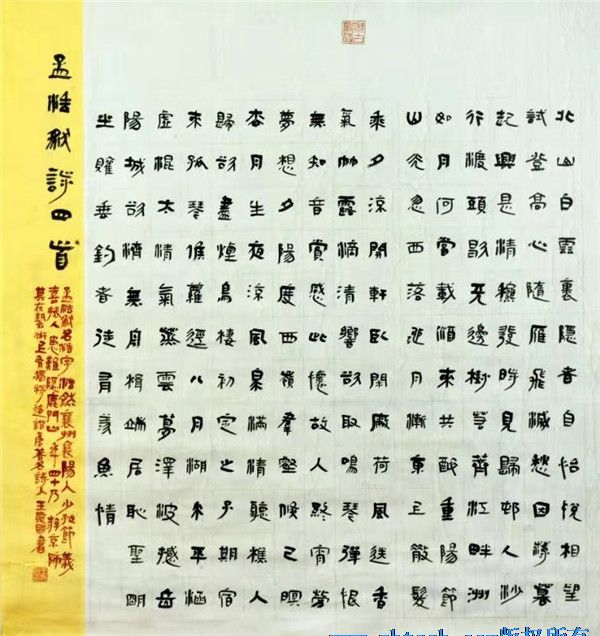 北山白雲裏隱者自怡悅相望
試登高心隨雁飛滅愁因薄暮
起興是清穐發時見歸邨人沙
行渡頭歇天邊樹若薺江畔洲
如月何當載酒來共醉重陽節
山光忽西落池月漸東上散髮
乘夕涼開軒臥閑敞荷風送香
氣竹露滴清響欲取鳴琴彈恨
無知音賞感此懷故人終宵勞
夢想夕陽度西嶺羣壑倏已暝
松月生夜涼風泉滿清聽樵人
歸欲盡煙鳥棲初定之子期宿
來孤琴候蘿徑八月湖水平涵
虛混太清氣蒸雲夢澤波撼岳
陽城欲濟無舟楫端居恥聖明
坐觀垂釣者徒有羨魚情
孟浩然詩四首
孟浩然名浩字浩然襄州襄陽人少好節義
喜振人患難隱鹿門山年四十乃游京師
其在藝術上有獨特造詣唐著名詩人王書
版权所有